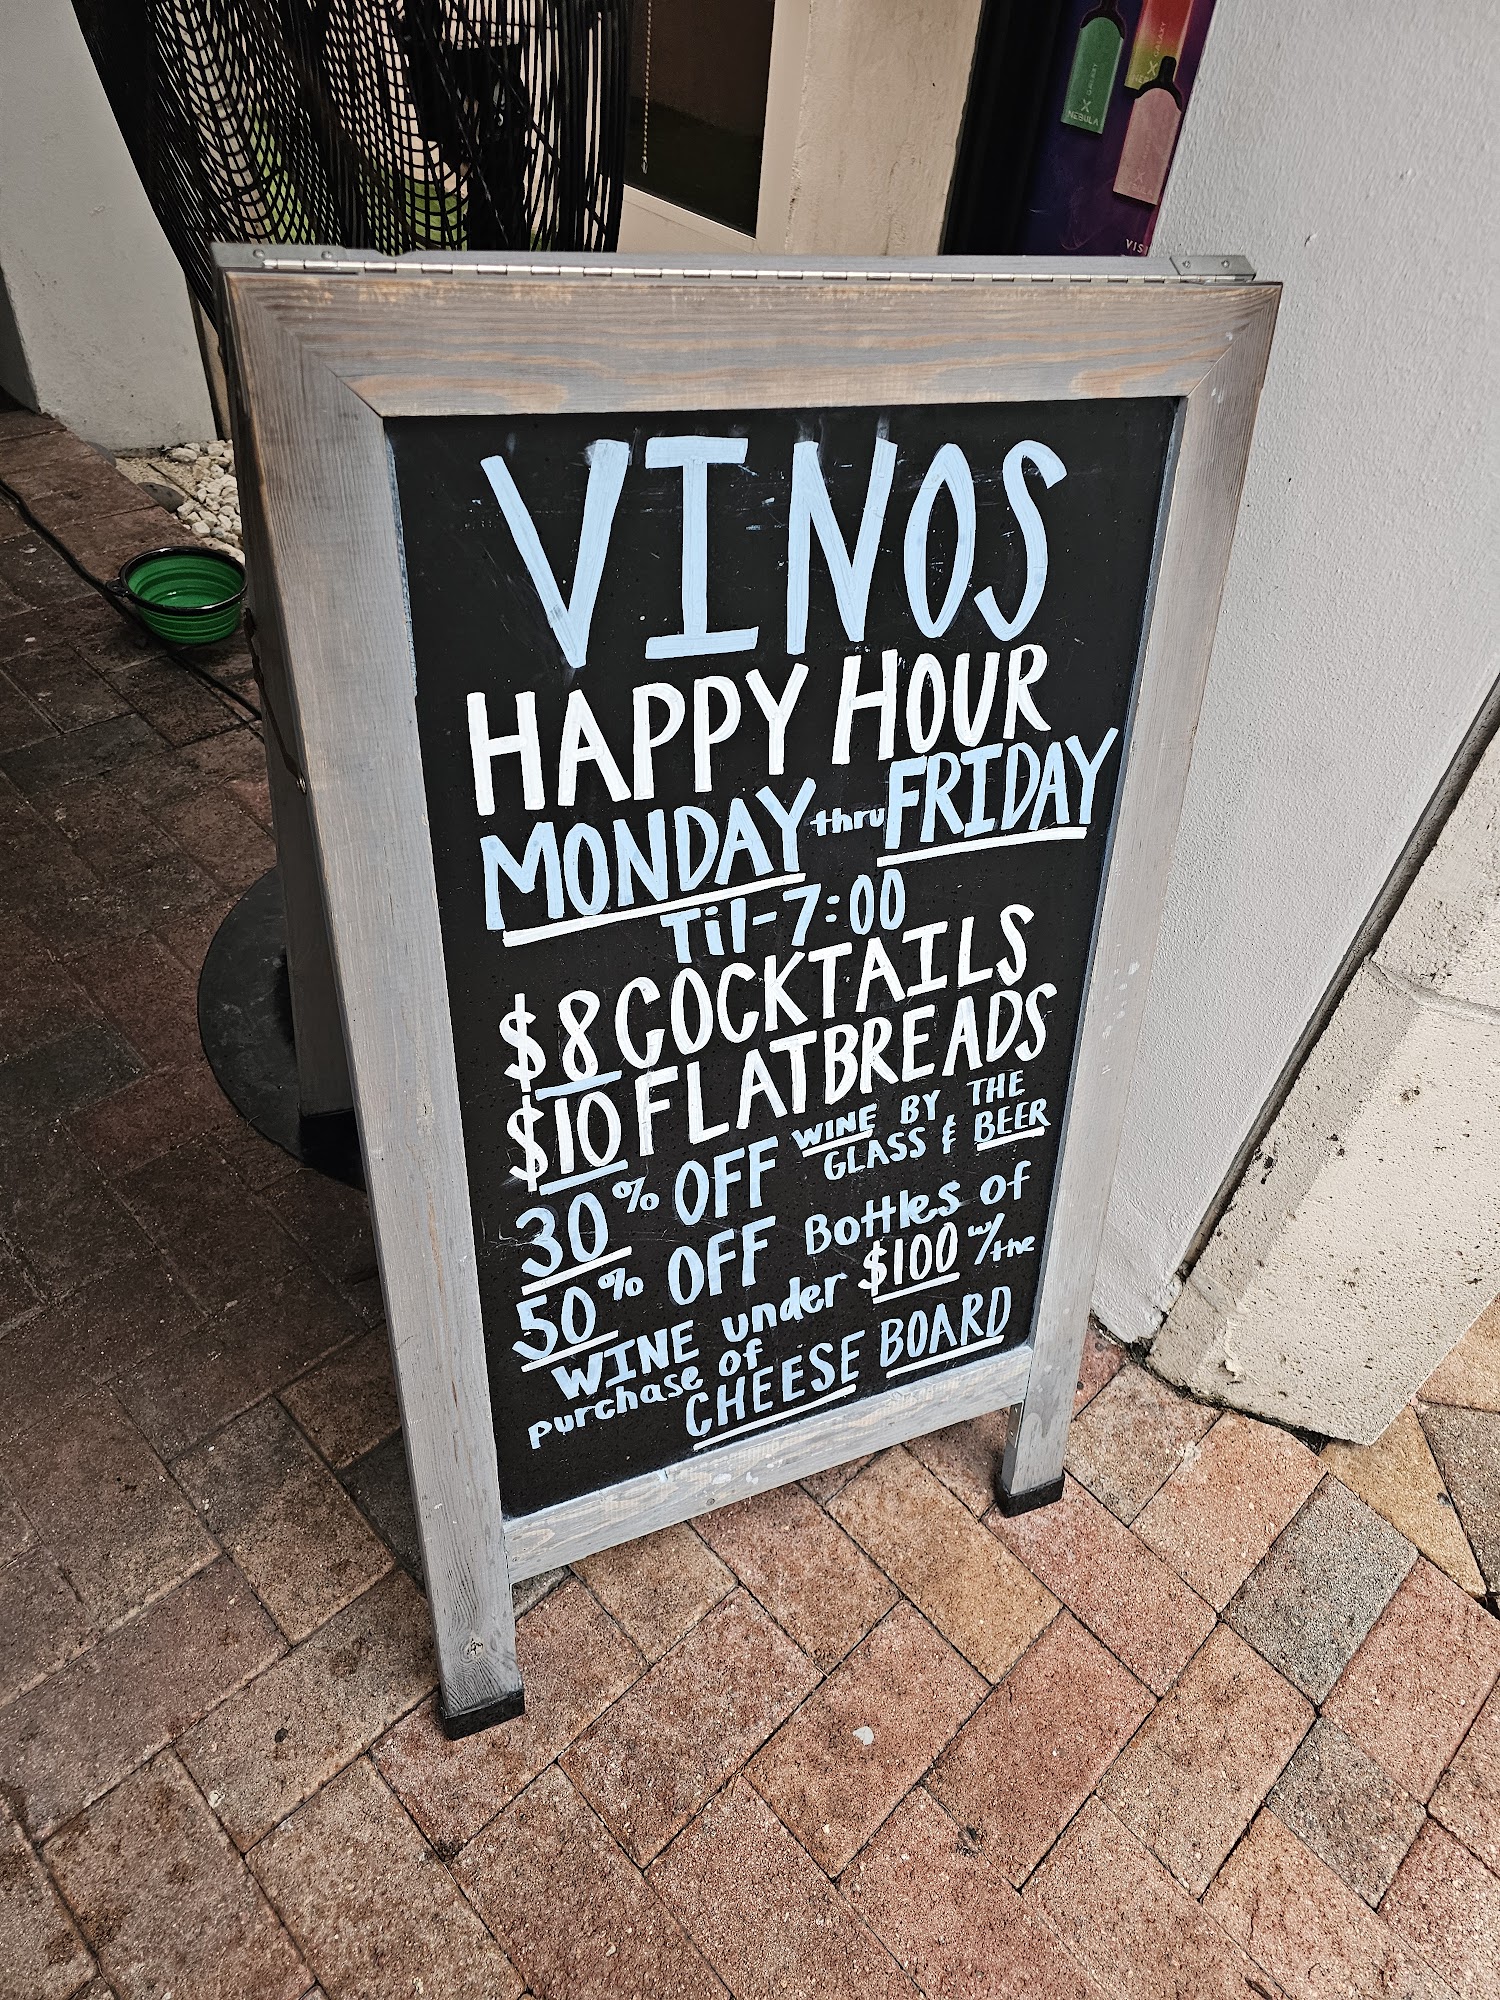 GALAXY
X
NEBULA
GALAXY
X
VIS
VINOS
HAPPY HOUR
MONDAY thru FRIDAY
Til-7:00
$8 COCKTAILS
$10 FLATBREADS
30% OFF WINE BY THE
GLASS & BEER
50% OFF Bottles of
WINE under $100 w/the
purchase of
CHEESE BOARD